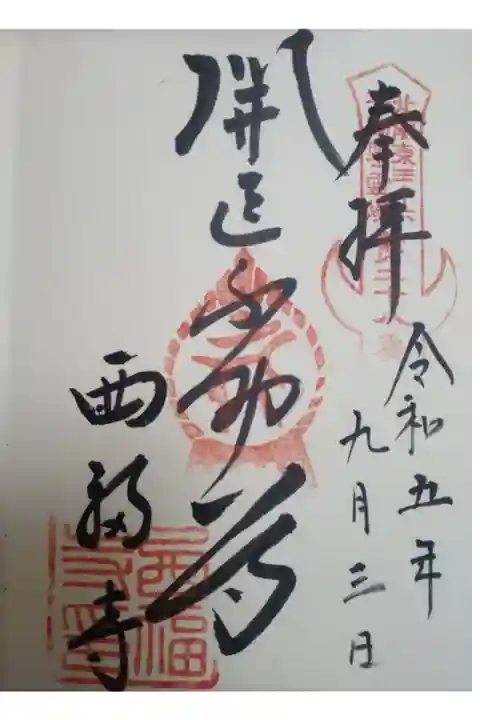 奉拝
令和五年
九月三日
開運不動尊
西福寺
西福